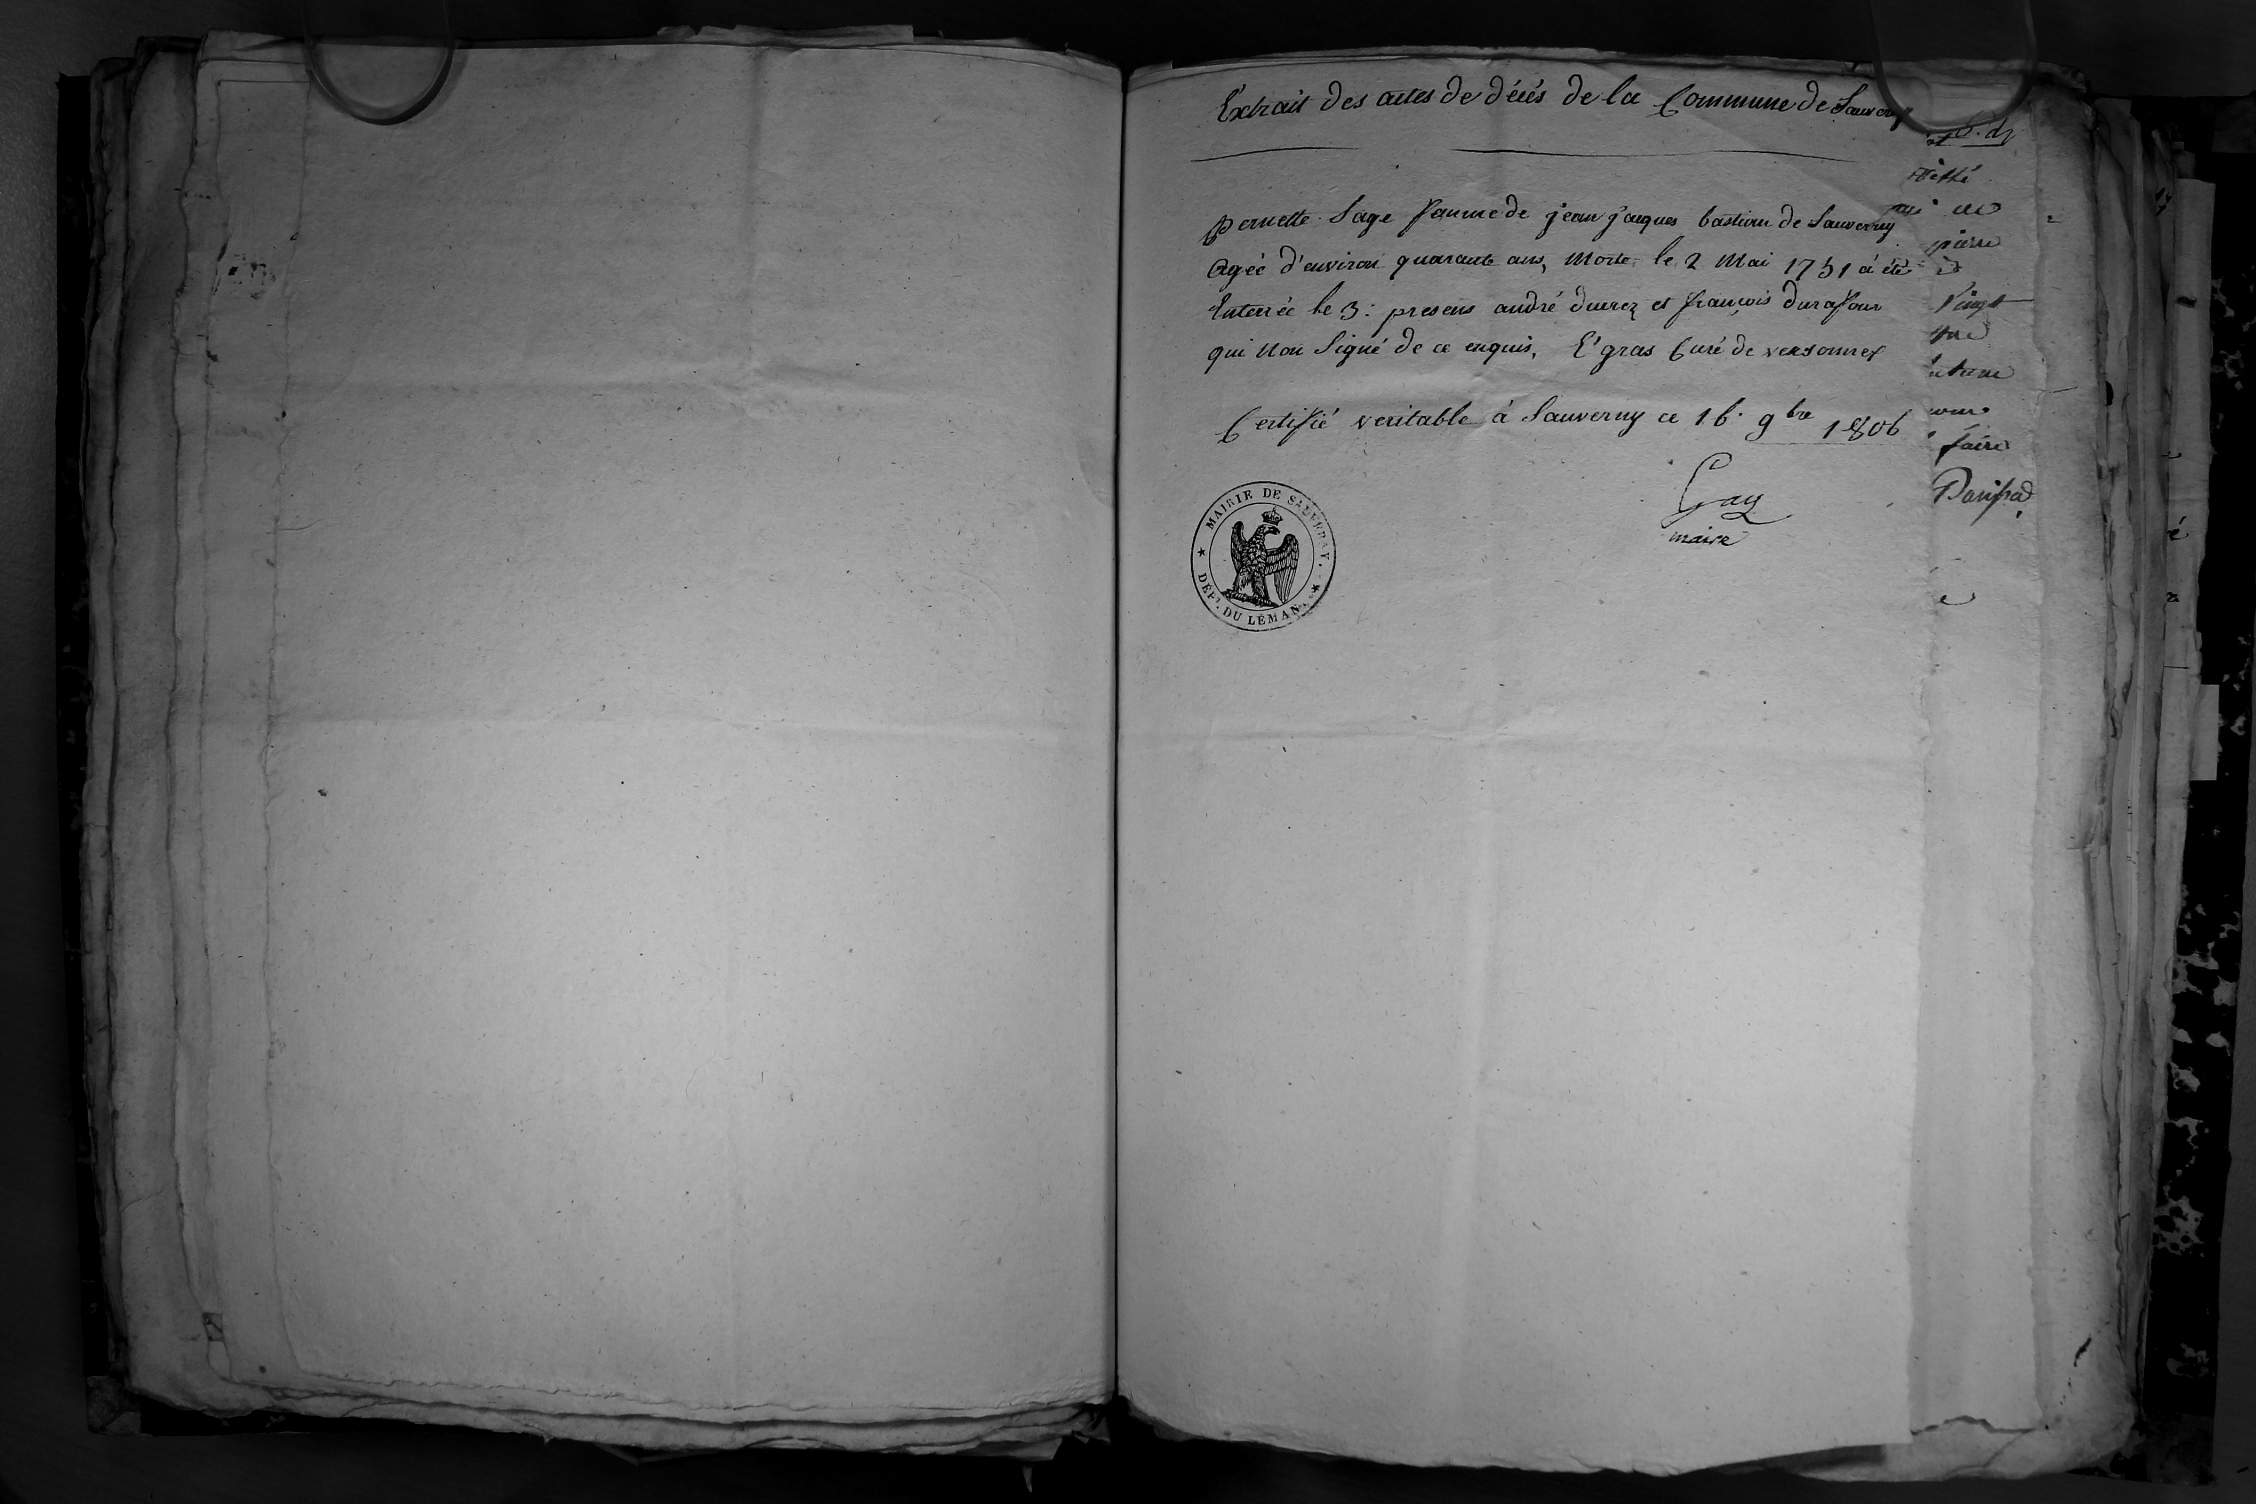 Extrait des actes de décés de la Commune de Sauverny
Pernette Sage famme de jean jaques bastian de Sauverny
Agée d'environ quarante ans, Morte le 2 Mai 1751 à été
Enterrée le 3: presens andré ducrez et françois durafour
qui Non Signé de ce enquis, L'gras Curé de versonnex
Certifié veritable à Sauverny ce 16. 9bre 1806
Gay
maire
MAIRIE DE SAUVERNY.
DÉPT. DU LÉMAN.
pierre
Vingt
faire